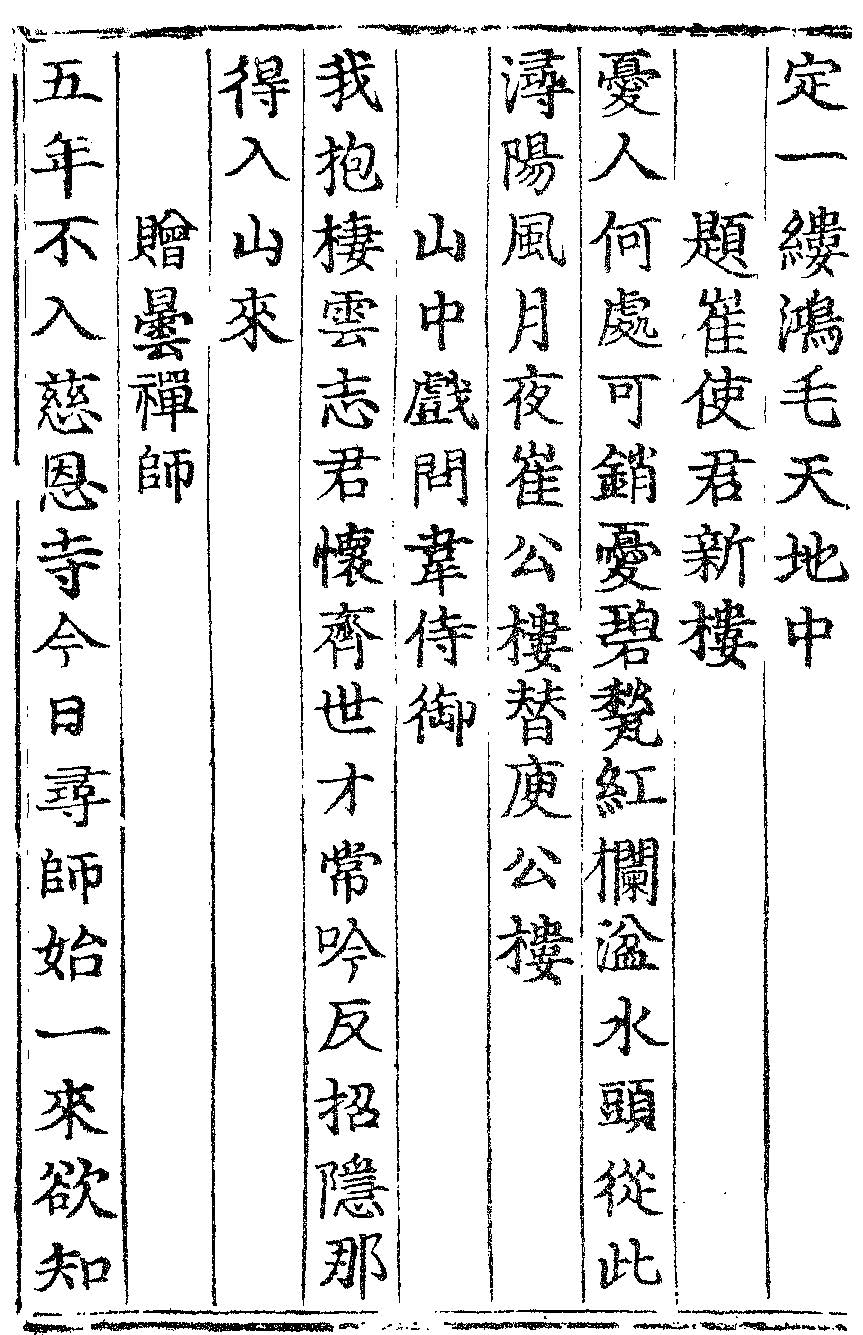 定一縷鴻毛天地中
題崔使君新樓
憂人何處可銷憂碧甃紅欄湓水頭從此
潯陽風月夜崔公樓替庾公樓
山中戲問韋侍御
我抱棲雲志君懷齊世才常吟反招隱那
得入山來
贈曇禪師
五年不入慈恩寺今日尋師始一來欲知